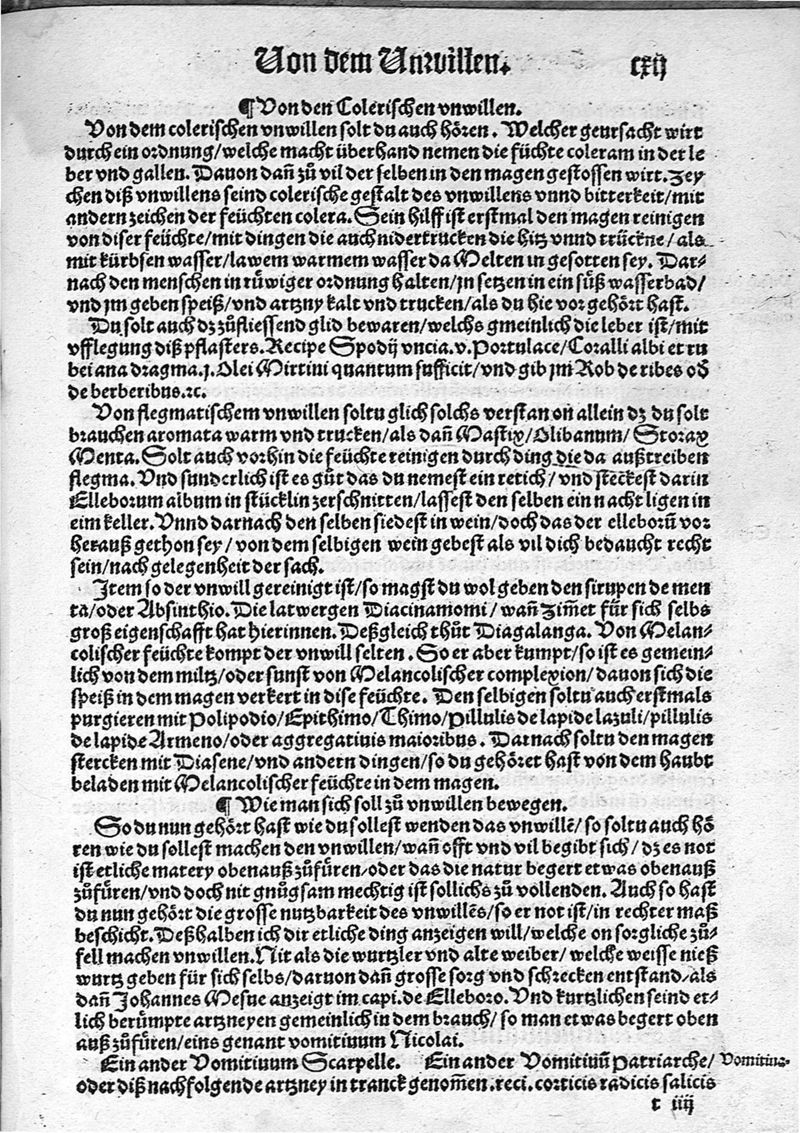 Von dem Unwillen. cxij
¶ Von den Colerischen vnwillen.
Von dem colerischen vnwillen solt du auch hören. Welcher geursacht wirt
durch ein ordnung/welche macht überhand nemen die füchte coleram in der le
ber vnd gallen. Dauon dañ zů vil der selben in den magen gestossen wirt. Zey
chen diß vnwillens seind colerische gestalt des vnwillens vnnd bitterkeit/mit
andern zeichen der feüchten colera. Sein hilff ist erstmal den magen reinigen
von diser feüchte/mit dingen die auch nidertrucken die hitz vnnd trückne/als
mit kürbsen wasser/lawem warmem wasser da Melten in gesotten sey. Dar-
nach den menschen in rüwiger ordnung halten/jn setzen in ein süß wasserbad/
vnd jm geben speiß/vnd artzny kalt vnd trucken/als du hie vor gehört hast.
Du solt auch dz zůfliessend glid bewaren/welchs gmeinlich die leber ist/mit
vfflegung diß pflasters. Recipe Spodij vncia.v. Portulace/Coralli albi et ru
bei ana dragma.j. Olei Mirtini quantum sufficit/vnd gib jm Rob de ribes od̄
de berberibus.⁊c.
Von flegmatischem vnwillen soltu glich solchs verstan on allein dz du solt
brauchen aromata warm vnd trucken/als dañ Mastix/Olibanum/Storax
Menta. Solt auch vorhin die feüchte reinigen durch ding die da außtreiben
flegma. Vnd sunderlich ist es gůt das du nemest ein retich/vnd steckest darin
Elleborum album in stücklin zerschnitten/lassest den selben ein nacht ligen in
eim keller. Vnnd darnach den selben siedest in wein/doch das der elleborū vor
herauß gethon sey/von dem selbigen wein gebest als vil dich bedaucht recht
sein/nach gelegenheit der sach.
Item so der vnwill gereinigt ist/so magst du wol geben den sirupen de men
ta/oder Absinthio. Die latwergen Diacinamomi/wañ Zim̄et für sich selbs
groß eigenschafft hat hierinnen. Deßgleich thůt Diagalanga. Von Melan-
colischer feüchte kompt der vnwill selten. So er aber kumpt/so ist es gemein-
lich von dem miltz/oder sunst von Melancolischer complexion/dauon sich die
speiß in dem magen verkert in dise feüchte. Den selbigen soltu auch erstmals
purgieren mit Polipodio/Epithimo/Thimo/Pillulis de lapide lazuli/pillulis
de lapide Armeno/oder aggregatiuis maioribus. Darnach soltu den magen
stercken mit Diasene/vnd andern dingen/so du gehöret hast von dem haubt
beladen mit Melancolischer feüchte in dem magen.
¶ Wie man sich soll zů vnwillen bewegen.
So du nun gehört hast wie du sollest wenden das vnwillē/so soltu auch hö
ren wie du sollest machen den vnwillen/wañ offt vnd vil begibt sich/dz es not
ist etliche matery obenauß zůfüren/oder das die natur begert etwas obenauß
zůfüren/vnd doch nit gnůgsam mechtig ist sollichs zů vollenden. Auch so hast
du nun gehört die grosse nutzbarkeit des vnwillēs/so er not ist/in rechter maß
beschicht. Deßhalben ich dir etliche ding anzeigen will/welche on sorgliche zů-
fell machen vnwillen. Nit als die wurtzler vnd alte weiber/welche weisse nieß
wurtz geben für sich selbs/daruon dañ grosse sorg vnd schrecken entstand/als
dañ Johannes Mesue anzeigt im capi. de Elleboro. Vnd kurtzlichen seind et-
lich berümpte artzneyen gemeinlich in dem brauch/so man etwas begert oben
auß zůfüren/eins genant vomitiuum Nicolai.
Ein ander Vomitiuum Scarpelle. Ein ander Vomitiuū Patriarche/ Vomitiua.
oder diß nachfolgende artzney in tranck genom̄en. reci. corticis radicis salicis
t iiij